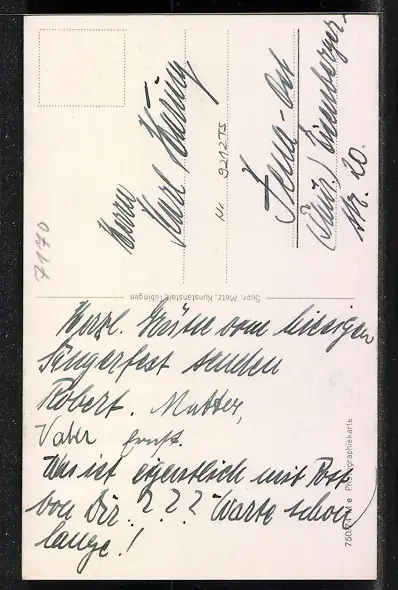 Herrn
Karl Häring
Jena-Ost
(Thür.) Eisenberger-
Str. 20.
Nr. 9212TS
7170
Gebr. Metz, Kunstanstalt, Tübingen
Herzl. Grüße vom hiesigen
Sängerfest senden
Robert. Mutter,
Vater Ernst.
Was ist eigentlich mit Post
von Dir. ??? Warte schon
lange!
Photographiekarte